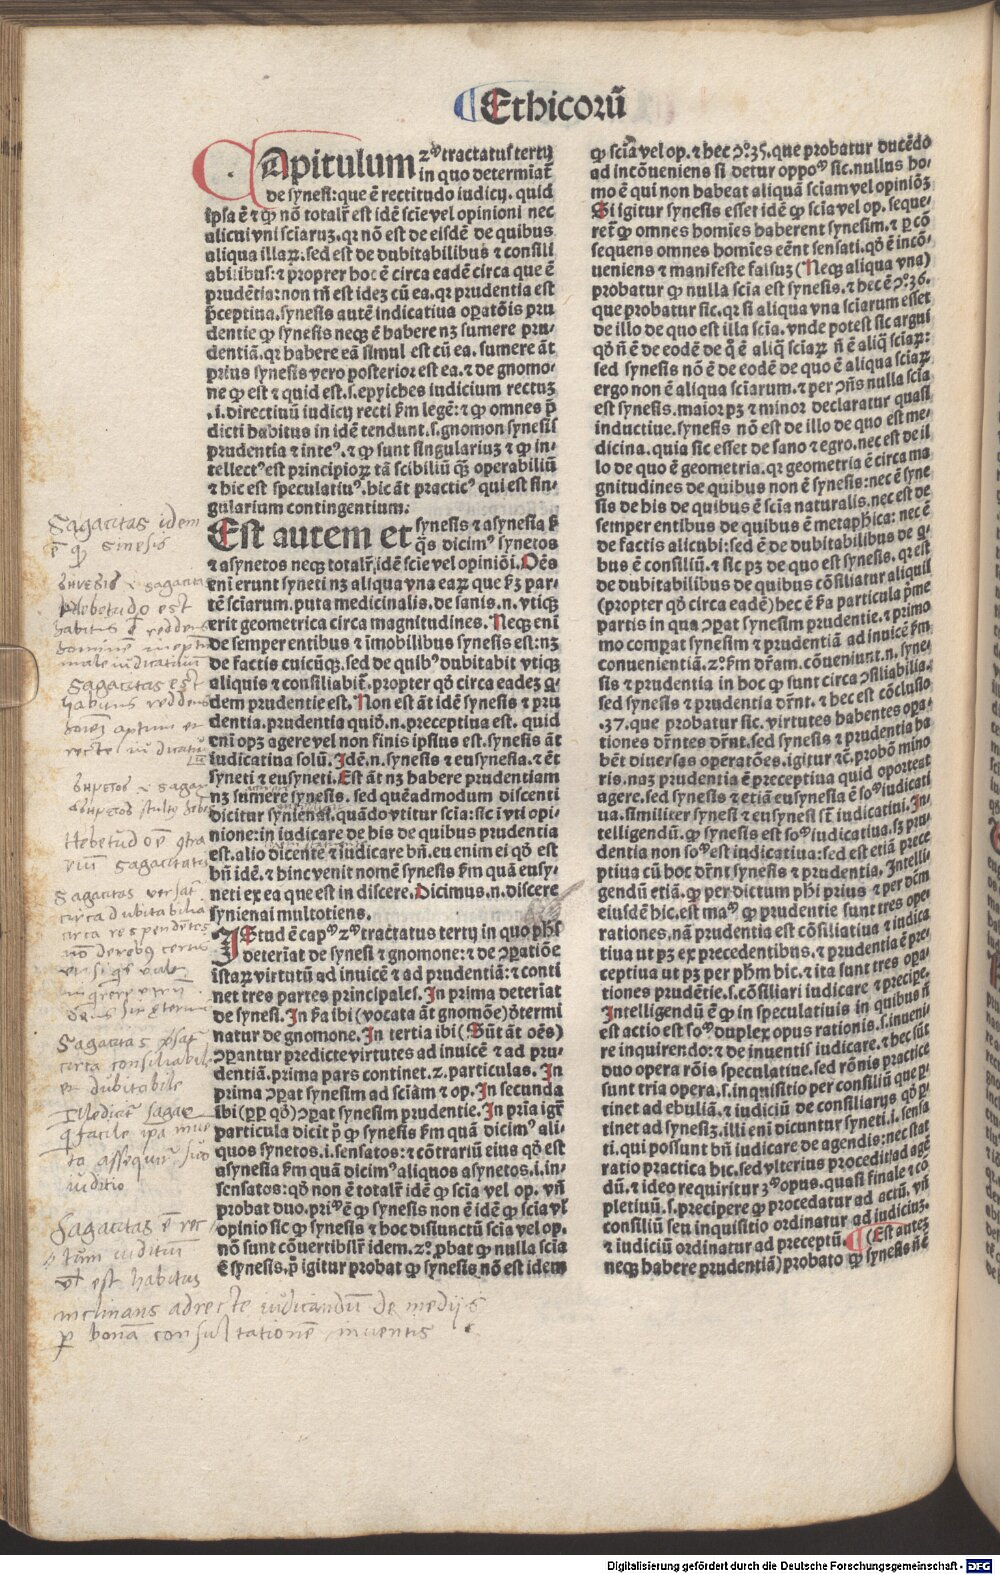 Ethicorū
Capitulum zᵐ tractatus tertij
in quo determiat̄
de synesi: que ē rectitudo iudicij. quid
ipsa ē ⁊ ꝙ nō totalr̄ est idē scīe vel opinioni nec
alicui vni sciaruꝫ. qr nō est de eisdē de quibus
aliqua illaꝝ. sed est de dubitabilibus ⁊ consili
abilibus: ⁊ propter hoc ē circa eadē circa que ē
prudētia: non tn̄ est ideꝫ cū ea. qr prudentia est
p̄ceptiua. synesis autē indicatiua opatōis pru
dentie ꝙ synesis neqꝫ ē habere nꝫ sumere pru-
dentiā. qr habere eā simul est cū ea. sumere āt
prius synesis vero posterior est ea. ⁊ de gnomo-
ne ꝙ est ⁊ quid est. s. epyiches iudicium rectuꝫ
.i. directiuū iudicij recti ẜm legē: ⁊ ꝙ omnes p̄
dicti habitus in idē tendunt. s. gnomon synesis
prudentia ⁊ inteꝰ. ⁊ ꝙ sunt singulariuꝫ ⁊ ꝙ in-
tellectꝰ est principioꝝ tā scibiliū qꝫ̄ operabiliū
⁊ hic est speculatiuꝰ. hic āt practicꝰ qui est sin-
gularium contingentium.
Est autem et synesis ⁊ asynesia ẜ
q̄s dicimꝰ synetos
⁊ asynetos neqꝫ totalr̄ idē scīe vel opiniōi. Oēs
eni erunt syneti nꝫ aliqua vna eaꝝ que ẜꝫ par-
tē sciarum. puta medicinalis. de sanis. n. vtiqꝫ
erit geometrica circa magnitudines. Neqꝫ eni
de semper entibus ⁊ īmobilibus synesis est: nꝫ
de factis cuicūqꝫ. sed de quibꝰ dubitabit vtiqꝫ
aliquis ⁊ consiliabit̄. propter qḋ circa eadeꝫ q̇-
dem prudentie est. Non est āt idē synesis ⁊ pru
dentia. prudentia quiḋ. n. preceptiua est. quid
eni opꝫ agere vel non finis ipsius est. synesis āt
iudicatiua solū. Idē. n. synesis ⁊ eusynesia. ⁊ ēt
syneti ⁊ eusyneti. Est āt nꝫ habere prudentiam
nꝫ sumere synesis. sed quēadmodum discenti
dicitur syniensi. quādo vtitur scia: sic ī vti opi-
nione: in iudicare de his de quibus prudentia
est. alio dicente ⁊ iudicare bn̄. eu enim ei qḋ est
bn̄ idē. ⁊ hinc venit nomē synesis ẜm quā eusy-
neti ex ea que est in discere. Dicimus. n. discere
synienai multotiens.
Istud ē capᵐ zᵐ tractatus tertij in quo pħs
deteriat de synesi ⁊ gnomone: ⁊ de ꝯpatiōe
istaꝝ virtutū ad inuicē ⁊ ad prudentiā: ⁊ conti
net tres partes principales. In prima deteriat
de synesi. In ẜa ibi (vocata āt gnomōe) ḋtermi
natur de gnomone. In tertia ibi (Sūt āt oēs)
ꝯpantur predicte virtutes ad inuicē ⁊ ad pru-
dentiā. prima pars continet .z. particulas. In
prima ꝯpat synesim ad sciām ⁊ op. In secunda
ibi (ꝓp̄ qḋ) ꝯpat synesim prudentie. In pria igr̄
particula dicit p̄ ꝙ synesis ẜm quā dicimꝰ ali-
quos synetos .i. sensatos: ⁊ cōtrariū eius qḋ est
asynesia ẜm quā dicimꝰ aliquos asynetos .i. in-
sensatos: qḋ non ē totalr̄ idē ꝙ scia vel op. vn̄
probat duo. priᵐ ē ꝙ synesis non ē idē ꝙ scia vl̄
opinio sic ꝙ synesis ⁊ hoc disiunctū scia vel op.
nō sunt cōuertibilr̄ idem. zᵒ ꝓbat ꝙ nulla scia
ē synesis. p̄ igitur probat ꝙ synesis nō est idem
ꝙ scīa vel op. ⁊ hec ꝯᵒ. 35. que probatur ducēdo
ad incōueniens si detur oppoᵐ sic. nullus ho-
mo ē qui non habeat aliquā sciam vel opiniōꝫ
Si igitur synesis esset idē ꝙ scia vel op. seque-
ret̄ ꝙ omnes homies haberent synesim. ⁊ p cō
sequens omnes homies eēnt sensati. qḋ ē incō-
ueniens ⁊ manifeste falsuꝫ (Neqꝫ aliqua vna)
probatur ꝙ nulla scia est synesis. ⁊ hec ē ꝯᵒ. 36.
que probatur sic. qr si aliqua vna sciarum esset
de illo de quo est illa scia. vnde potest sic argui
qḋ n̄ ē de eodē de q̇ ē aliq̄ sciaꝝ n̄ ē aliq̄ sciaꝝ:
sed synesis nō ē de eodē de quo ē aliqua sciaꝝ
ergo non ē aliqua sciarum. ⁊ per ꝯn̄s nulla scia
est synesis. maior pꝫ ⁊ minor declaratur quasi
inductiue. synesis nō est de illo de quo est me-
dicina. quia sic esset de sano ⁊ egro. nec est de il
lo de quo ē geometria. qr geometria ē circa ma
gnitudines de quibus non ē synesis: nec ē syne
sis de his de quibus ē scia naturalis. nec est de
semper entibus de quibus ē metapħica: nec ē
de factis alicubi: sed ē de dubitabilibus de q̇-
bus ē consiliū. ⁊ sic pꝫ de quo est synesis. qr est
de dubitabilibus de quibus cōsiliatur aliquis
(propter qḋ circa eadē) hec ē ẜa particula p̄me
partis in qua ꝯpat synesim prudentie. ⁊ primo
mo compat synesim ⁊ prudentiā ad inuicē ẜm
conuenientiā. zᵒ ẜm dr̄am. cōueniunt. n. syne-
sis ⁊ prudentia in hoc ꝙ sunt circa ꝯsiliabilia.
sed synesis ⁊ prudentia dr̄nt. ⁊ hec est cōclusio
.37. que probatur sic. virtutes habentes opa-
tiones dr̄ntes dr̄nt. sed synesis ⁊ prudentia ha
bēt diuersas operatōes. igitur ⁊c̄. probō mino
ris. naꝫ prudentia ē preceptiua quid oporteat
agere. sed synesis ⁊ etiā eusynesia ē soᵐ iudicati
ua. similiter syneti ⁊ eusyneti st̄ iudicatiui. In-
telligendū. ꝙ synesis est soᵐ iudicatiua. sꝫ pru-
dentia non soᵐ est iudicatiua: sed est etiā prece
ptiua cū hoc dr̄nt synesis ⁊ prudentia. Intelli-
gendū etiā. ꝙ per dictum pħi prius ⁊ per dc̄m
eiusdē hic. est maᵐ ꝙ prudentie sunt tres ope-
rationes. nā prudentia est cōsiliatiua ⁊ iudica
tiua ut pꝫ ex precedentibus. ⁊ prudentia ē pre-
ceptiua ut pꝫ per pħm hic. ⁊ ita sunt tres opa-
tiones prudētie. s. cōsiliari iudicare ⁊ precipe.
Intelligendū ē ꝙ in speculatiuis in quibus n̄
est actio est soᵐ duplex opus rationis. s. inueni
re inquirendo: ⁊ de inuentis iudicare. ⁊ hec sūt
duo opera rōis speculatiue. sed rōnis practice
sunt tria opera. s. inquisitio per consiliū que p̱-
tinet ad ebuliā. ⁊ iudiciū de consiliatis qḋ p̱-
tinet ad synesiꝫ. illi eni dicuntur syneti .i. sensa
ti. qui possunt bn̄ iudicare de agendis: nec stat
ratio practica hic. sed vlterius procedit ad agē
dū. ⁊ ideo requiritur 3ᵐ opus. quasi finale ⁊ cō
pletiuū. s. precipere ꝙ procedatur ad actū. vn̄
consiliū seu inquisitio ordinatur ad iudiciuꝫ.
⁊ iudiciū ordinatur ad preceptū. (Est auteꝫ
neqꝫ habere prudentiā) probato ꝙ synesis n̄ ē
Sagacitas idem
ē ꝙ sinesis
habitus ē reddens
Sagacitas est
habitus reddens
hoiēm aptum ad
recte iudicatū
Sagacitas versat̄
circa dubitabilia
Sagacitas ꝟsat̄
circa consiliabile
et dubitabile
iuditio
Sagacitas ē rec-
tum iuditiū
vl̄ est habitus
inclinans ad recte iudicandū de medijs
p bonā consultationē inuentis
Digitalisierung gefördert durch die Deutsche Forschungsgemeinschaft - DFG